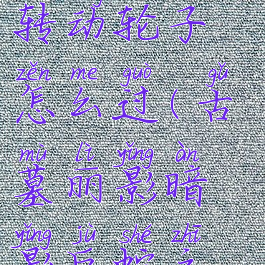 转动轮子
zěn me guò gǔ
怎么过(古
mù lì yǐng àn
墓丽影暗
yǐng jù shé zhī
影